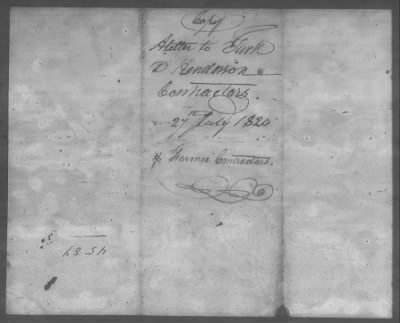 Copy
A letter to Turk
& Henderson
Contractors.
27th July 1820
Former Contractors.
45.57